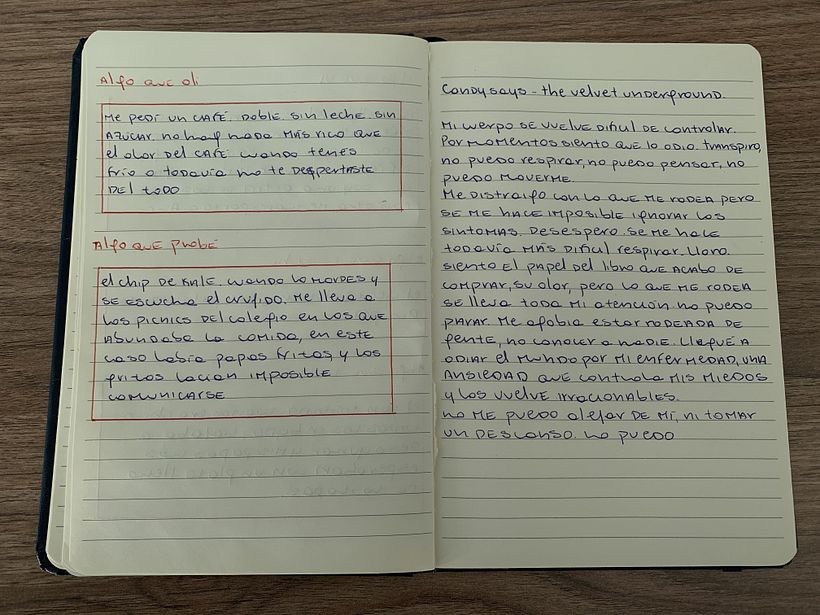 Algo que olí
Me pedí un café. Doble. sin leche sin
azúcar. no hay nada más rico que
el olor del café cuando tenés
frío o todavía no te despertaste
del todo
Algo que probé
el chip de kale. cuando lo mordés y
se escucha el crujido. Me lleva a
los picnics del colegio en los que
abundaba la comida, en este
caso había papas fritas y los
gritos hacían imposible
comunicarse
Candy says - the velvet underground.
Mi cuerpo se vuelve difícil de controlar.
Por momentos siento que lo odio. transpiro,
no puedo respirar, no puedo pensar, no
puedo moverme.
Me distraigo con lo que me rodea pero
se me hace imposible ignorar los
síntomas. Desespero. se me hace
todavía más difícil respirar. Lloro.
siento el papel del libro que acabo de
comprar, su olor, pero lo que me rodea
se lleva toda mi atención no puedo
parar. Me agobia estar rodeada de
gente, no conocer a nadie. Llegué a
odiar el mundo por mi enfermedad, una
ansiedad que controla mis miedos
y los vuelve irracionables.
no me puedo alejar de mí, ni tomar
un descanso. no puedo